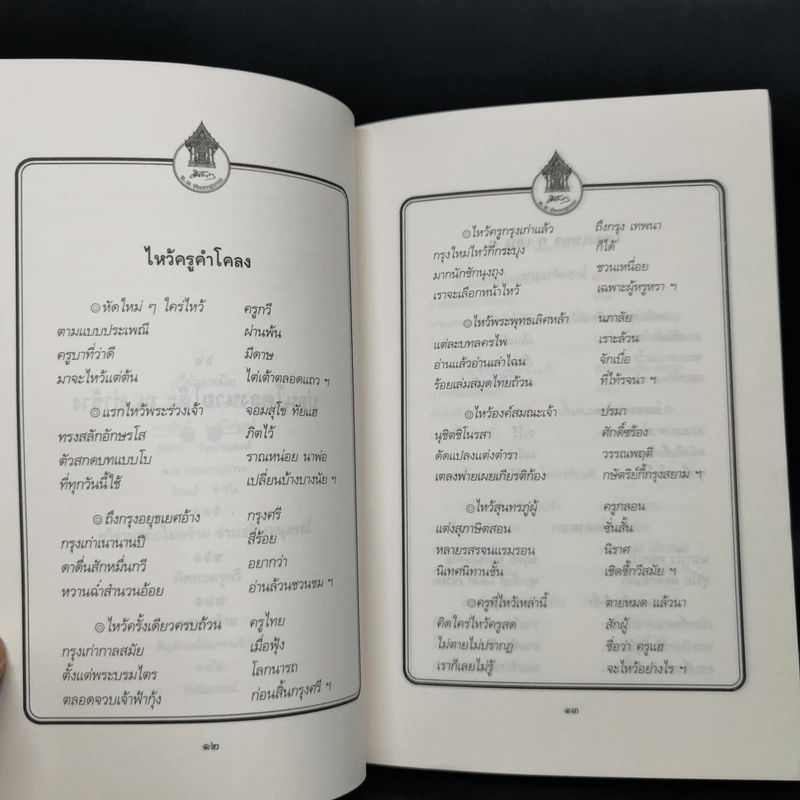 ไหว้ครูคำโคลง
๏ หัดใหม่ ๆ ใคร่ไหว้ ครูกวี
ตามแบบประเพณี ผ่านพ้น
ครูบาที่ว่าดี มีดาษ
มาจะไหว้แต่ต้น ไต่เต้าตลอดแถว ฯ
๏ แรกไหว้พระร่วงเจ้า จอมสุโข ทัยแฮ
ทรงสลักอักษรโส ภิตไว้
ตัวสกดบทแบบโบ ราณหน่อย นาพ่อ
ที่ทุกวันนี้ใช้ เปลี่ยนบ้างบางนัย ฯ
๏ ถึงกรุงอยุธเยศอ้าง กรุงศรี
กรุงเก่าเนานานปี สี่ร้อย
ดาดื่นสักหมื่นกวี อยากว่า
หวานฉ่ำสำนวนอ้อย อ่านล้วนชวนชม ฯ
๏ ไหว้ครั้งเดียวครบถ้วน ครูไทย
กรุงเก่ากาลสมัย เมื่อฟุ้ง
ตั้งแต่พระบรมไตร โลกนารถ
ตลอดจวบเจ้าฟ้ากุ้ง ก่อนสิ้นกรุงศรี ฯ
๑๒
๏ ไหว้ครูกรุงเก่าแล้ว ถึงกรุง เทพนา
กรุงใหม่ไหว้กี่กระบุง ก็ได้
มากนักชักนุงถุง ชวนเหนื่อย
เราจะเลือกหน้าไหว้ เฉพาะผู้หรูหรา ฯ
๏ ไหว้พระพุทธเลิศหล้า นภาลัย
แต่ละบทลครไพ เราะล้วน
อ่านแล้วอ่านเล่าไฉน จักเบื่อ
ร้อยเล่มสมุดไทยถ้วน ที่ไท้รจนา ฯ
๏ ไหว้องค์สมณะเจ้า ปรมา
นุชิตชิโนรสา ศักดิ์ซร้อง
ดัดแปลงแต่งตำรา วรรณพฤติ
เตลงพ่ายเผยเกียรติก้อง กษัตริย์กี้กรุงสยาม ฯ
๏ ไหว้สุนทรภู่ผู้ ครูกลอน
แต่งสุภาษิตสอน ชั่นสั้น
หลายรสรจนแรมรอน นิราศ
นิเทศนิทานชั้น เชิดชี้กวีสมัย ฯ
๏ ครูที่ไหว้เหล่านี้ ตายหมด แล้วนา
คิดใคร่ไหว้ครูสด สักผู้
ไม่ตายไม่ปรากฏ ชื่อว่า ครูแฮ
เราก็เลยไม่รู้ จะไหว้อย่างไร ฯ
๑๓